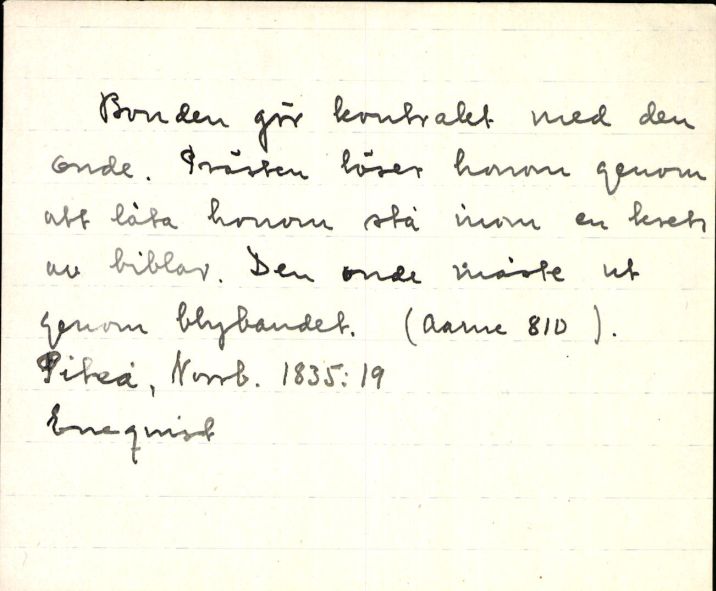 Bonden gör kontrakt med den
onde. Prästen löser honom genom
att låta honom stå inom en krets
av biblar. Den onde måste ut
genom blybandet. (Aarne 810).
Piteå, Norrb. 1835:19
Enequist